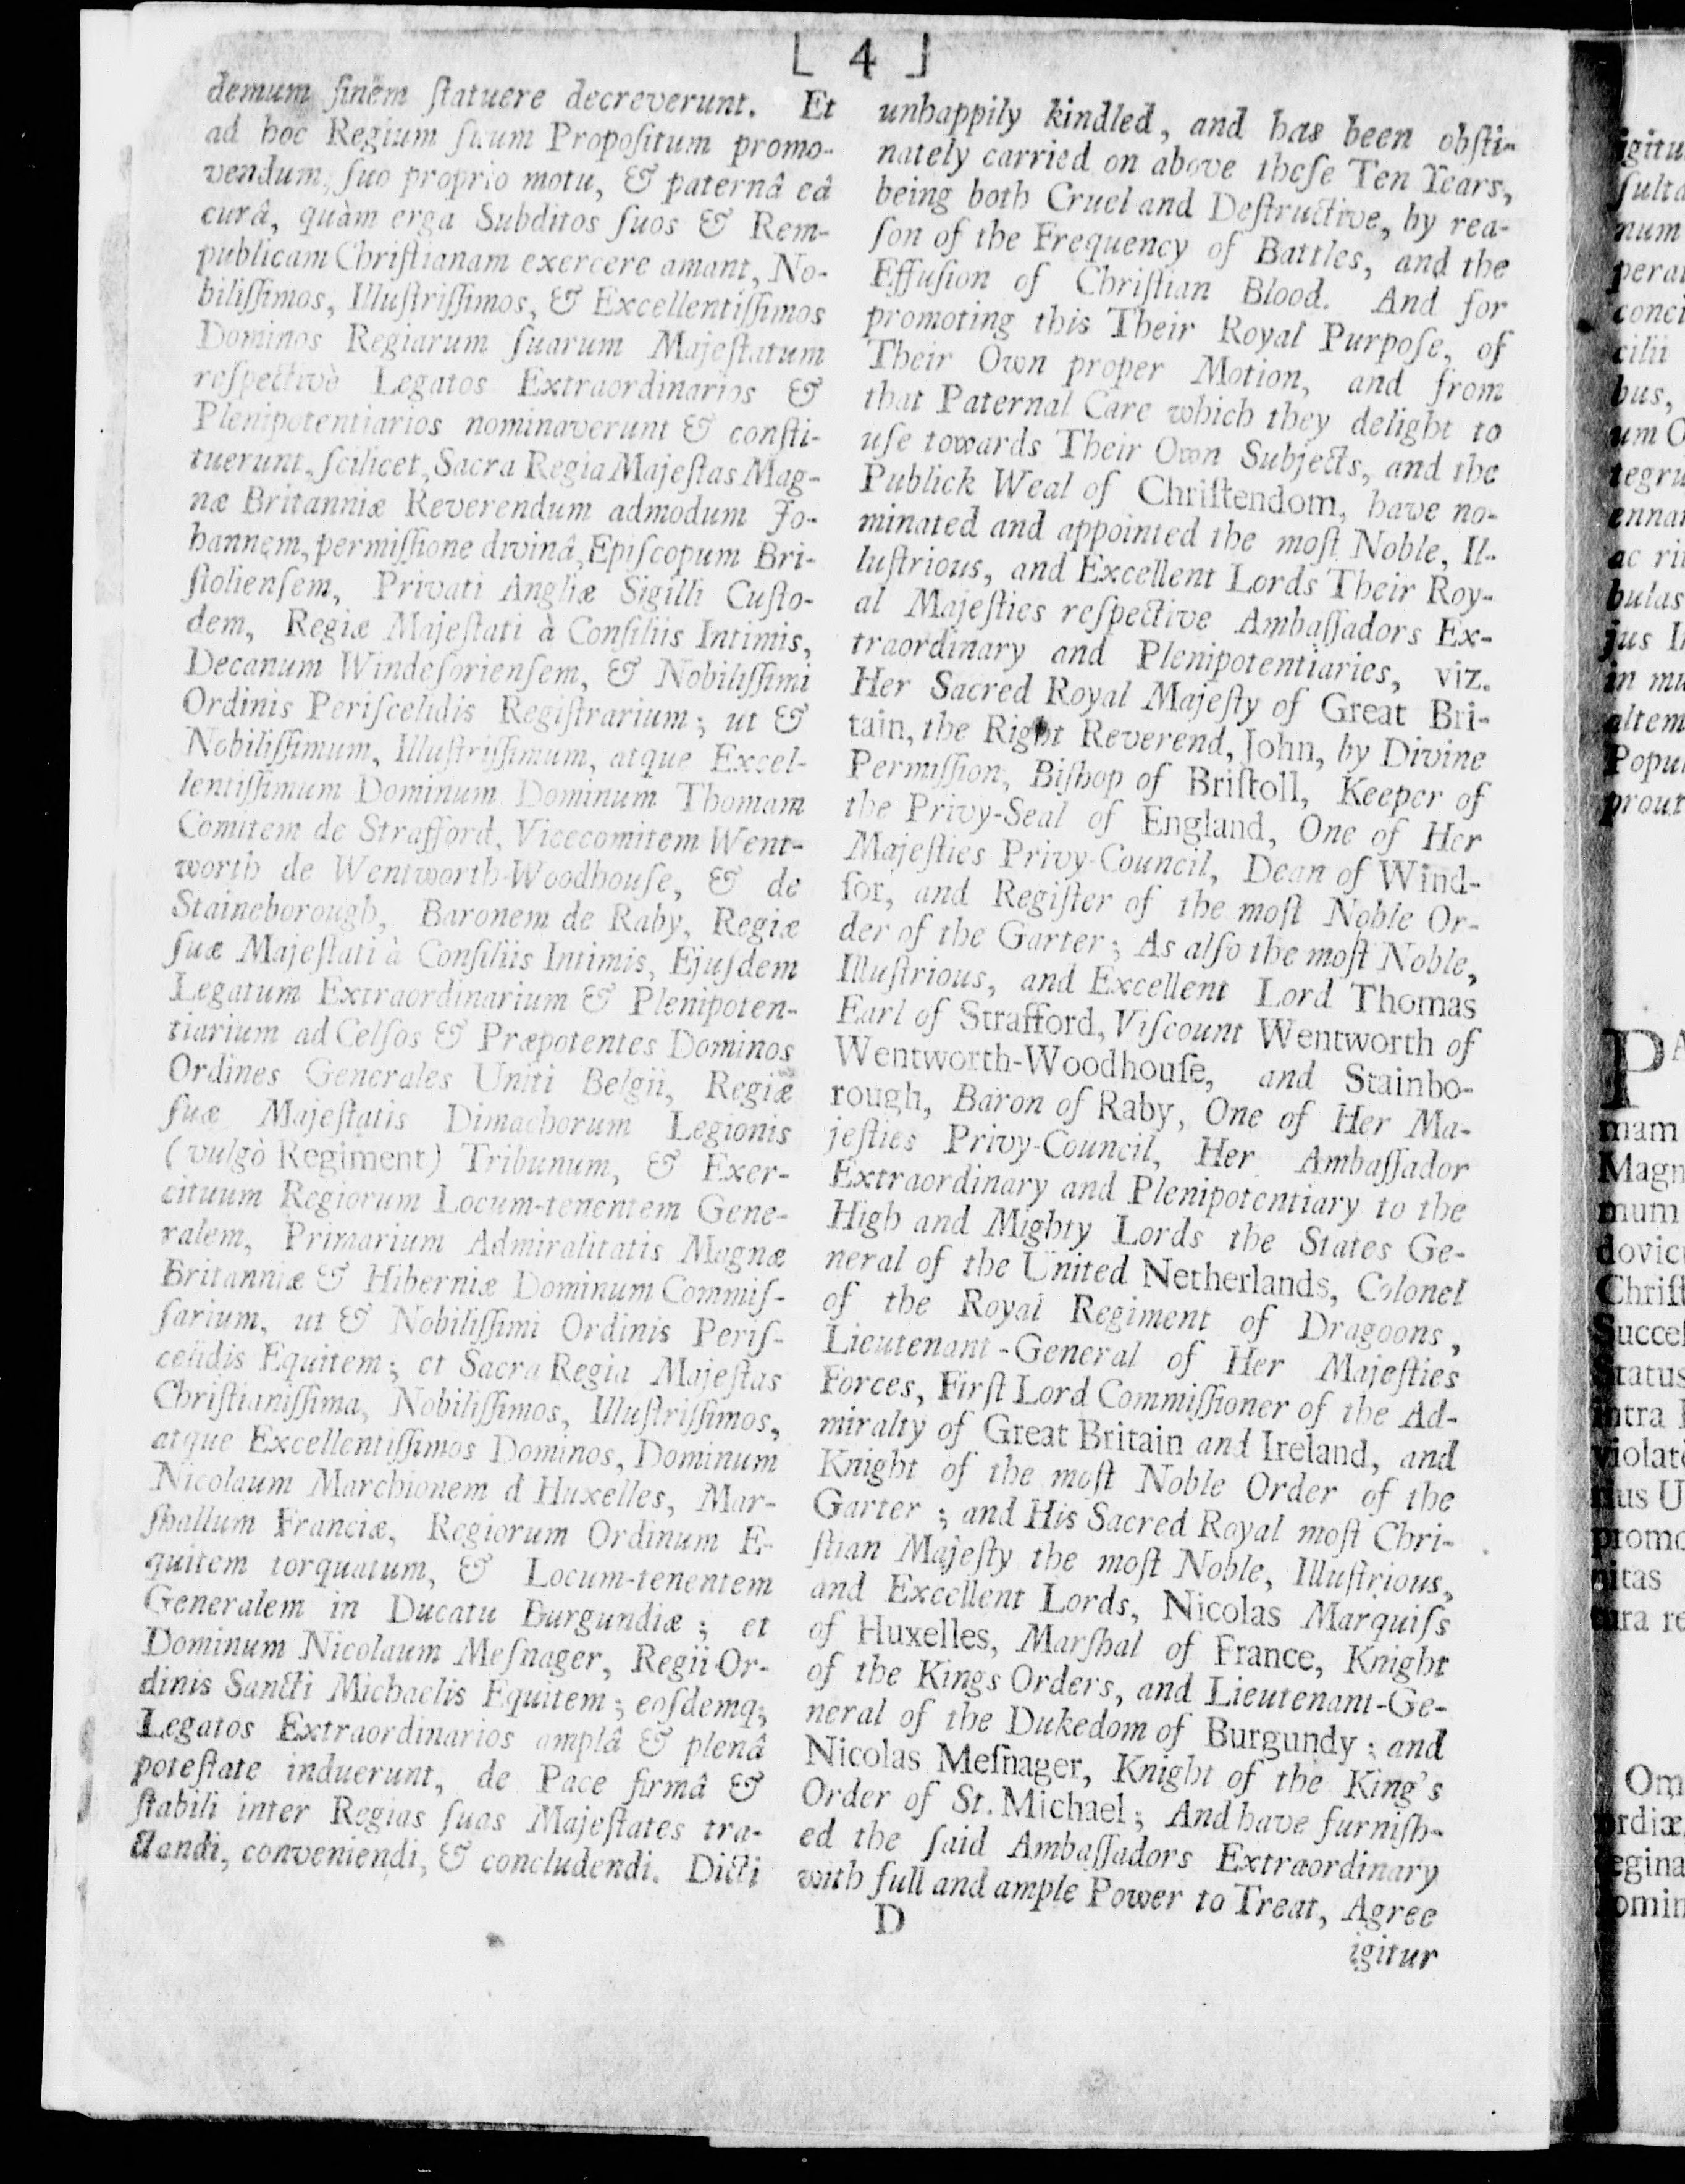 [ 4 ]
demum finem ſtatuere decreverunt. Et
ad hoc Regium ſuum Propoſitum promo-
vendum, ſuo proprio motu, & paternâ eâ
curâ, quàm erga Subditos ſuos & Rem-
publicam Chriſtianam exercere amant, No-
biliſſimos, Illuſtriſſimos, & Excellentiſſimos
Dominos Regiarum ſuarum Majeſtatum
reſpectivè Legatos Extraordinarios &
Plenipotentiarios nominaverunt & conſti-
tuerunt, ſcilicet, Sacra Regia Majeſtas Mag-
næ Britanniæ Reverendum admodum Jo-
hannem, permiſſione divinâ, Epiſcopum Bri-
ſtolienſem, Privati Angliæ Sigilli Cuſto-
dem, Regiæ Majeſtati à Conſiliis Intimis,
Decanum Windeſorienſem, & Nobiliſſimi
Ordinis Periſcelidis Regiſtrarium; ut &
Nobiliſſimum, Illuſtriſſimum, atque Excel-
lentiſſimum Dominum Dominum Thomam
Comitem de Strafford, Vicecomitem Went-
worth de Wentworth-Woodhouſe, & de
Staineborough, Baronem de Raby, Regiæ
ſuæ Majeſtati à Conſiliis Intimis, Ejuſdem
Legatum Extraordinarium & Plenipoten-
tiarium ad Celſos & Præpotentes Dominos
Ordines Generales Uniti Belgii, Regiæ
ſuæ Majeſtatis Dimachorum Legionis
(vulgò Regiment) Tribunum, & Exer-
cituum Regiorum Locum-tenentem Gene-
ralem, Primarium Admiralitatis Magnæ
Britanniæ & Hiberniæ Dominum Commiſ-
ſarium, ut & Nobiliſſimi Ordinis Periſ-
celidis Equitem; et Sacra Regia Majeſtas
Chriſtianiſſima, Nobiliſſimos, Illuſtriſſimos,
atque Excellentiſſimos Dominos, Dominum
Nicolaum Marchionem d Huxelles, Mar-
ſhallum Franciæ, Regiorum Ordinum E-
quitem torquatum, & Locum-tenentem
Generalem in Ducatu Burgundiæ; et
Dominum Nicolaum Meſnager, Regii Or-
dinis Sancti Michaelis Equitem; eoſdemq;
Legatos Extraordinarios amplâ & plenâ
poteſtate induerunt, de Pace firmâ &
ſtabili inter Regias ſuas Majeſtates tra-
ctandi, conveniendi, & concludendi. Dicti
unhappily kindled, and has been obſti-
nately carried on above theſe Ten Years,
being both Cruel and Deſtructive, by rea-
ſon of the Frequency of Battles, and the
Effuſion of Chriſtian Blood. And for
promoting this Their Royal Purpoſe, of
Their Own proper Motion, and from
that Paternal Care which they delight to
uſe towards Their Own Subjects, and the
Publick Weal of Chriſtendom, have no-
minated and appointed the moſt Noble, Il-
luſtrious, and Excellent Lords Their Roy-
al Majeſties reſpective Ambaſſadors Ex-
traordinary and Plenipotentiaries, viz.
Her Sacred Royal Majeſty of Great Bri-
tain, the Right Reverend, John, by Divine
Permiſſion, Biſhop of Briſtoll, Keeper of
the Privy-Seal of England, One of Her
Majeſties Privy-Council, Dean of Wind-
ſor, and Regiſter of the moſt Noble Or-
der of the Garter; As alſo the moſt Noble,
Illuſtrious, and Excellent Lord Thomas
Earl of Strafford, Viſcount Wentworth of
Wentworth-Woodhouſe, and Stainbo-
rough, Baron of Raby, One of Her Ma-
jeſties Privy-Council, Her Ambaſſador
Extraordinary and Plenipotentiary to the
High and Mighty Lords the States Ge-
neral of the United Netherlands, Colonel
of the Royal Regiment of Dragoons,
Lieutenant-General of Her Majeſties
Forces, Firſt Lord Commiſſioner of the Ad-
miralty of Great Britain and Ireland, and
Knight of the moſt Noble Order of the
Garter; and His Sacred Royal moſt Chri-
ſtian Majeſty the moſt Noble, Illuſtrious,
and Excellent Lords, Nicolas Marquiſs
of Huxelles, Marſhal of France, Knight
of the Kings Orders, and Lieutenant-Ge-
neral of the Dukedom of Burgundy; and
Nicolas Meſnager, Knight of the King's
Order of St. Michael; And have furniſh-
ed the ſaid Ambaſſadors Extraordinary
with full and ample Power to Treat, Agree
D
igitur